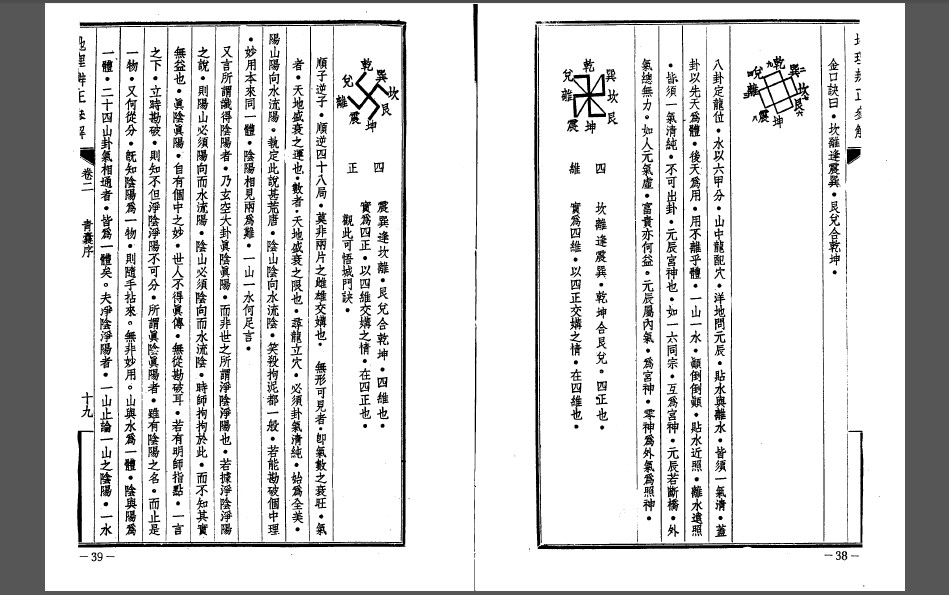 金口訣曰•坎離逢震巽•艮兌合乾坤•
乾
巽
坎
艮
坤
震
離
兌
八卦定龍位•水以六甲分•山中龍配穴•洋地問元辰•貼水與離水•皆須一氣清•蓋
卦以先天為體•後天為用•用不離乎體•一山一水•顚倒倒顚•貼水近照•離水遠照
•皆須一氣清純•不可出卦•元辰宮神也•如一六同宗•互為宮神•元辰若斷橋•外
氣總無力•如人元氣虛•富貴亦何益•元辰屬內氣•為宮神•零神為外氣為照神•
乾
巽
坎
艮
坤
震
離
兌
四
維
坎離逢震巽•乾坤合艮兌•四正也•
實為四維•以四正交媾之情•在四維也•
—38—
乾
巽
坎
艮
坤
震
離
兌
四
正
震巽逢坎離•艮兌合乾坤•四維也•
實為四正•以四維交媾之情•在四正也•
觀此可悟城門訣•
順子逆子•順逆四十八局•莫非兩片之雌雄交媾也•無形可見者•卽氣數之衰旺•氣
者•天地盛衰之運也•數者•天地盛衰之限也•尋龍立穴•必須卦氣清純•始為全美•
陽山陽向水流陽•執定此說甚荒唐•陰山陰向水流陰•笑殺拘泥都一般•若能勘破個中理
•妙用本來同一體•陰陽相見兩為難•一山一水何足言•
又言所謂識得陰陽者•乃玄空大卦眞陰眞陽•而非世之所謂淨陰淨陽也•若據淨陰淨陽
之說•則陽山必須陽向而水流陽•陰山必須陰向而水流陰•時師拘拘於此•而不知其實
無益也•眞陰眞陽•自有個中之妙•世人不得眞傳•無從勘破耳•若有明師指點•一言
之下•立時勘破•則知不但淨陰淨陽不可分•所謂眞陰眞陽者•雖有陰陽之名•而止是
一物•又何從分•旣知陰陽為一物•則隨手拈來。無非妙用。山與水為一體•陰與陽為
一體•二十四山卦氣相通者•皆為一體矣。夫淨陰淨陽者•一山止論一山之陰陽•一水
卷二
青囊序
十九
—39—